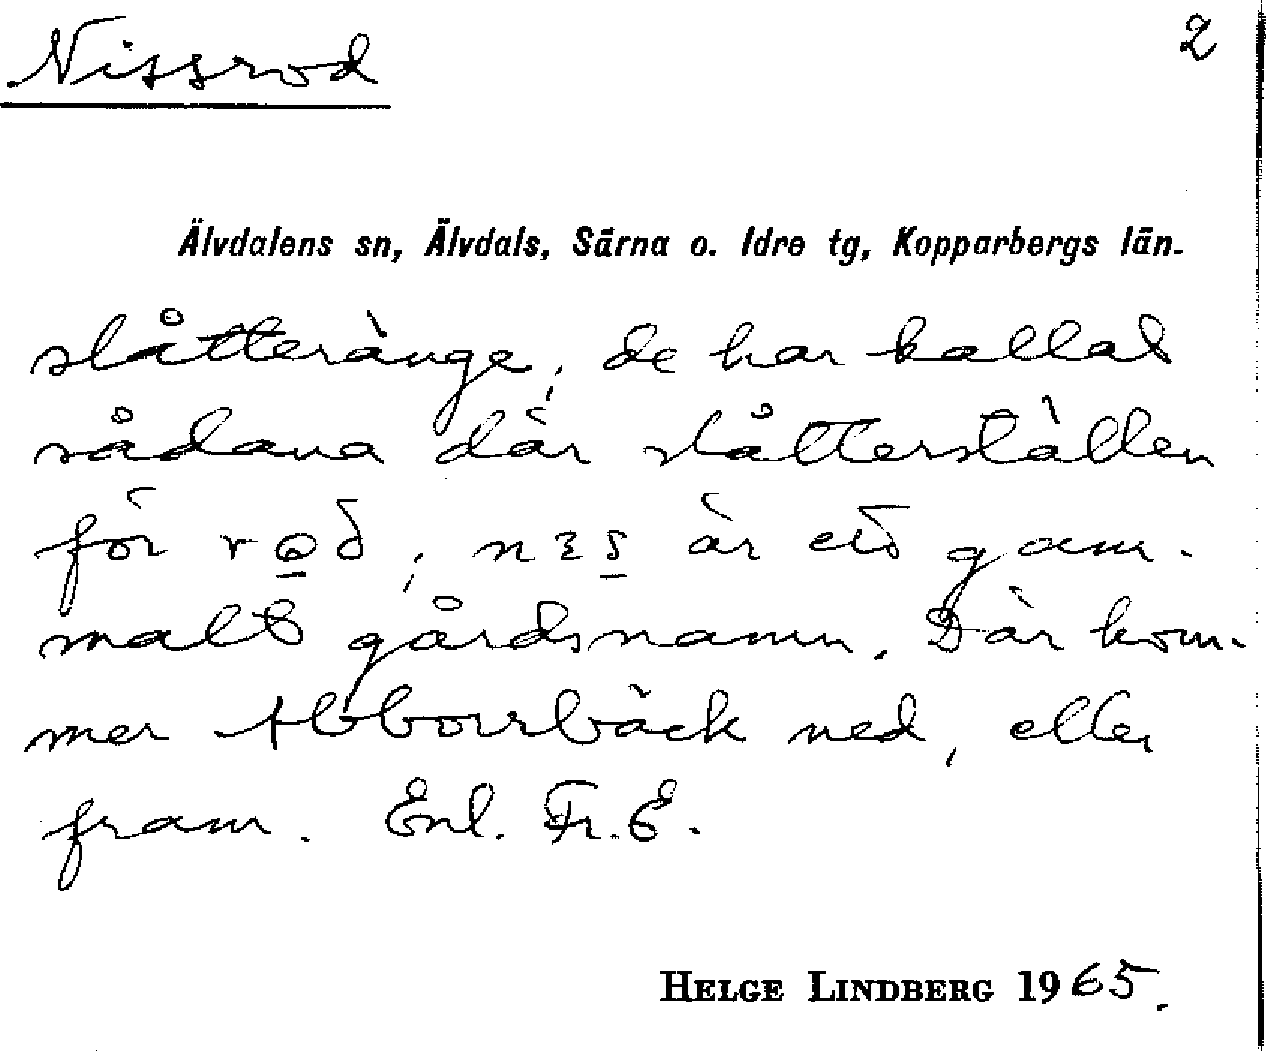 Nissrod
2
Älvdalens sn, Älvdals, Särna o. Idre tg, Kopparbergs län.
slåtteränge; de har kallat
sådana där slåtterställen
för 
är ett gam-
malt gårdsnamn. Där kom-
mer Abborrbäck ned, eller
fram. Enl. Fr. E.
HELGE LINDBERG 1965.